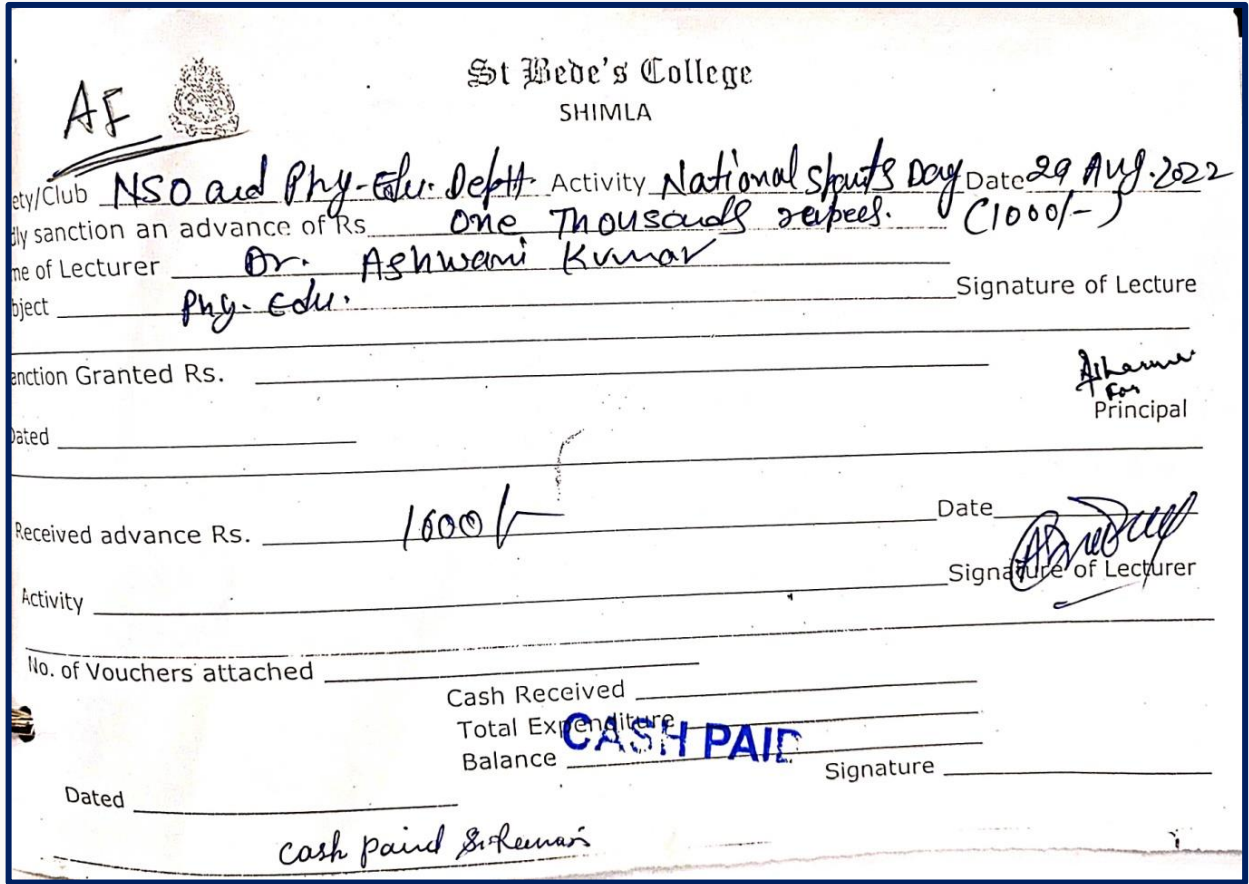 St Bede's College
SHIMLA
AF
ety/Club NSO and Phy-Edu. Deptt. Activity National Sports Day Date 29 Aug. 2022
ly sanction an advance of Rs One Thousands rupees. (1000/-)
ne of Lecturer Dr. Ashwani Kumar
bject Phy- Edu. Signature of Lecture
anction Granted Rs.
For
Principal
Dated
Received advance Rs. 1000/- Date
Signature of Lecturer
Activity
No. of Vouchers attached
Cash Received
Total Expenditure
CASH PAID
Balance
Signature
Dated
Cash paind